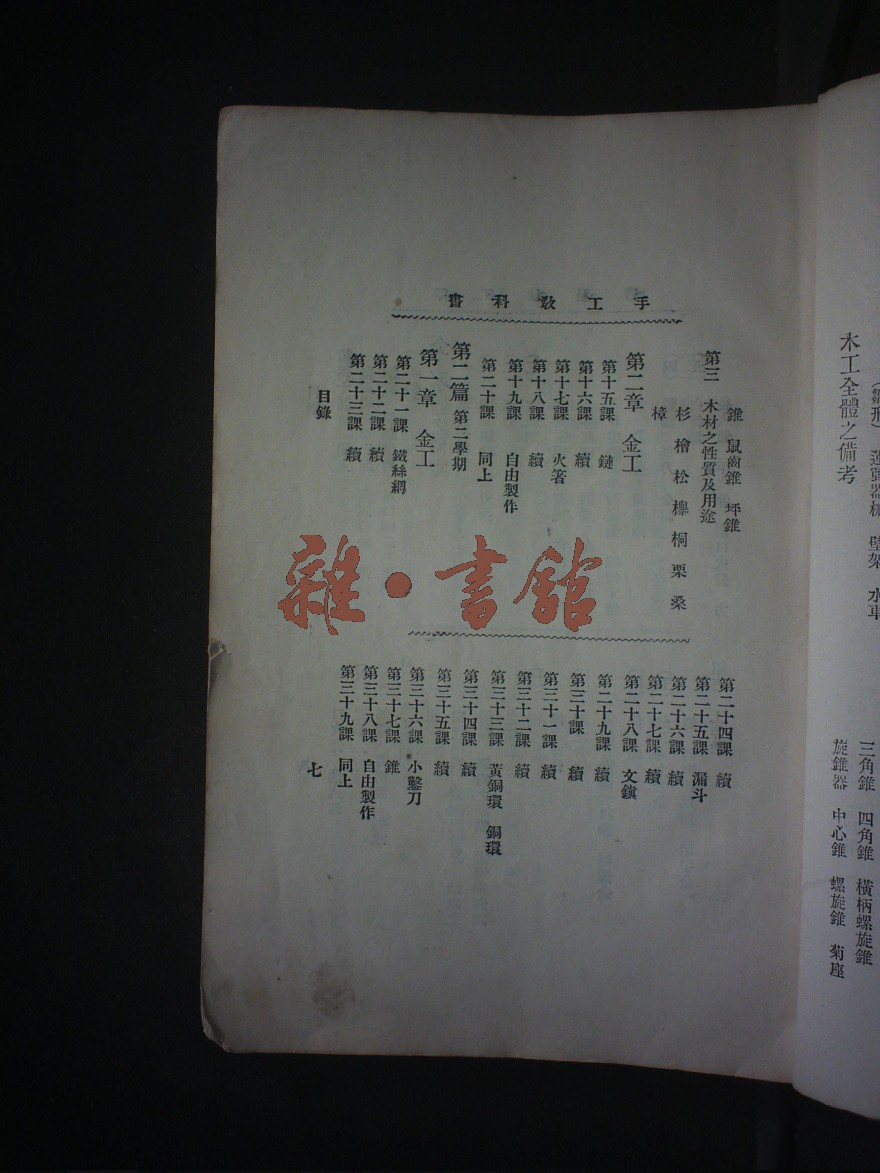 木工全體之備考
三角錐 四角錐 橫柄螺旋錐
旋錐器 中心錐 螺旋錐 菊座
手工教科書
錐 鼠齒錐 坪錐
第三 木材之性質及用途
杉 檜 松 櫸 桐 栗 桑
樟
第二章 金工
第十五課 鏈
第十六課 續
第十七課 火箸
第十八課 續
第十九課 自由製作
第二十課 同上
第二篇 第二學期
第一章 金工
第二十一課 鐵絲網
第二十二課 續
第二十三課 續
第二十四課 續
第二十五課 漏斗
第二十六課 續
第二十七課 續
第二十八課 文鎮
第二十九課 續
第三十課 續
第三十一課 續
第三十二課 續
第三十三課 黃銅環 銅環
第三十四課 續
第三十五課 續
第三十六課 小鑿刀
第三十七課 錐
第三十八課 自由製作
第三十九課 同上
目錄
七
雜·書館